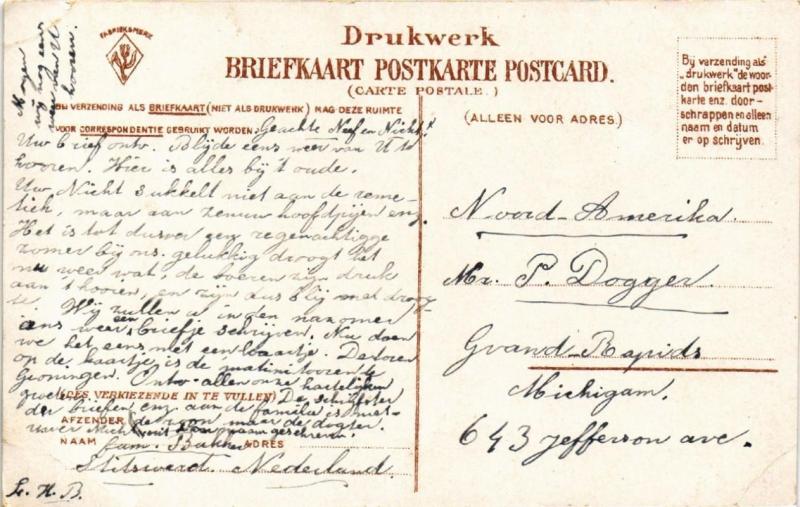 FABRIEKSMERK
Mogen
wij nog eens
weer van U
hooren.
Drukwerk
BRIEFKAART POSTKARTE POSTCARD.
(CARTE POSTALE.)
BIJ VERZENDING ALS BRIEFKAART (NIET ALS DRUKWERK) MAG DEZE RUIMTE
VOOR CORRESPONDENTIE GEBRUIKT WORDEN.
Geachte Neef en Nicht!
Uw brief ontv. Blijde eens weer van U te
hooren. Hier is alles bij 't oude.
Uw Nicht sukkelt niet aan de reme-
tiek, maar aan zenuw hoofdpijen enz.
Het is tot dusver een regenachtigge
zomer bij ons. gelukkig droogt het
nu weer wat, de boeren zijn druk
aan 't hooien, en zijn dus blij met droog-
te. Wij zullen u in den nazomer
eens weer een briefje schrijven. Nu doen
we het eens met een kaartje. De toren
op de kaartje is de matinitooren te
Groningen. Ontv. allen onze hartelijken
groeten. De schrijfster
(DES VERKIEZENDE IN TE VULLEN)
der brieven enz aan de familie is niet
AFZENDER
de zoon maar de dogter.
uwer Nicht
geschreven.
NAAM
Fam. Bakker
ADRES
Stitswerd. Nederland.
L. H. B.
(ALLEEN VOOR ADRES.)
Bij verzending als
„drukwerk" de woor-
den briefkaart post-
karte enz. door-
schrappen en alleen
naam en datum
er op schrijven.
Noord-Amerika.
Mr. P. Dogger.
Grand-Rapids
Michigam.
643 Jefferson ave.